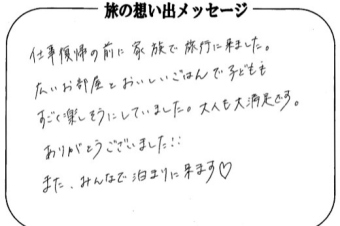 旅の想い出メッセージ
仕事復帰の前に家族で旅行に来ました。
広いお部屋とおいしいごはんで子どもも
すごく楽しそうにしていました。大人も大満足です。
ありがとうございました!!
また、みんなで泊まりに来ます♡